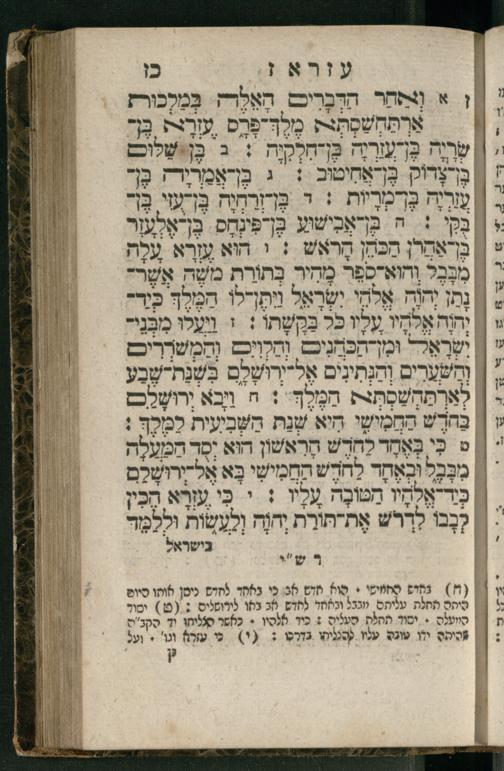 עזרא ז כז
ז א וְאַחַר הַדְּבָרִים הָאֵלֶּה בְּמַלְכוּת
אַרְתַּחְשַׁסְתְּא מֶלֶךְ־פָּרָס עֶזְרָא בֶּן־
שְׂרָיָה בֶּן־עֲזַרְיָה בֶּן־חִלְקִיָּה : ב בֶּן שַׁלּוּם
בֶּן־צָדוֹק בֶּן־אֲחִיטוּב : ג בֶּן־אֲמַרְיָה בֶּן־
עֲזַרְיָה בֶּן־מְרָיוֹת : ד בֶּן־זְרַחְיָה בֶּן־עֻזִּי בֶּן־
בֻּקִּי : ה בֶּן־אֲבִישׁוּעַ בֶּן־פִּינְחָס בֶּן־אֶלְעָזָר
בֶּן־אַהֲרֹן הַכֹּהֵן הָרֹאשׁ : ו הוּא עֶזְרָא עָלָה
מִבָּבֶל וְהוּא־סֹפֵר מָהִיר בְּתוֹרַת מֹשֶׁה אֲשֶׁר־
נָתַן יְהוָֹה אֱלֹהֵי יִשְׂרָאֵל וַיִּתֶּן־לוֹ הַמֶּלֶךְ כְּיַד־
יְהוָֹה אֱלֹהָיו עָלָיו כֹּל בַּקָּשָׁתוֹ : ז וַיַּעֲלוּ מִבְּנֵי־
יִשְׂרָאֵל וּמִן־הַכֹּהֲנִים וְהַלְוִיִּם וְהַמְשֹׁרְרִים
וְהַשֹּׁעֲרִים וְהַנְּתִינִים אֶל־יְרוּשָׁלִָם בִּשְׁנַת־שֶׁבַע
לְאַרְתַּחְשַׁסְתְּא הַמֶּלֶךְ : ח וַיָּבֹא יְרוּשָׁלִַם
בַּחֹדֶשׁ הַחֲמִישִׁי הִיא שְׁנַת הַשְּׁבִיעִית לַמֶּלֶךְ :
ט כִּי בְּאֶחָד לַחֹדֶשׁ הָרִאשׁוֹן הוּא יְסֻד הַמַּעֲלָה
מִבָּבֶל וּבְאֶחָד לַחֹדֶשׁ הַחֲמִישִׁי בָּא אֶל־יְרוּשָׁלִַם
כְּיַד־אֱלֹהָיו הַטּוֹבָה עָלָיו : י כִּי עֶזְרָא הֵכִין
לְבָבוֹ לִדְרֹשׁ אֶת־תּוֹרַת יְהוָֹה וְלַעֲשׂוֹת וּלְלַמֵּד
בישראל
רש״י
(ח) בחדש החמישי • הוא חדש אב כי באחד לחדש ניסן אותו היום
היתה תחלת עליתם מבבל ובאחד לחדש אב באו לירושלים : (ט) יסוד
המעלה • יסוד תחלת העליה : כיד אלהיו • כאשר הצליחו יד הקב״ה
שהיתה ידו טובה עליו להצליחו בדרכו : (י) כי עזרא וגו׳ • ועל
ק